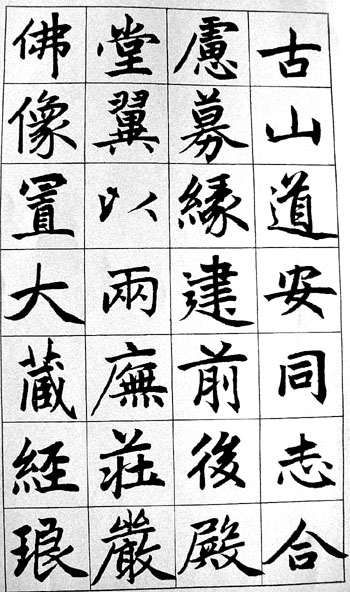 古山道安同志合
慮募緣建前後殿
堂翼以兩廡莊嚴
佛像置大藏經琅